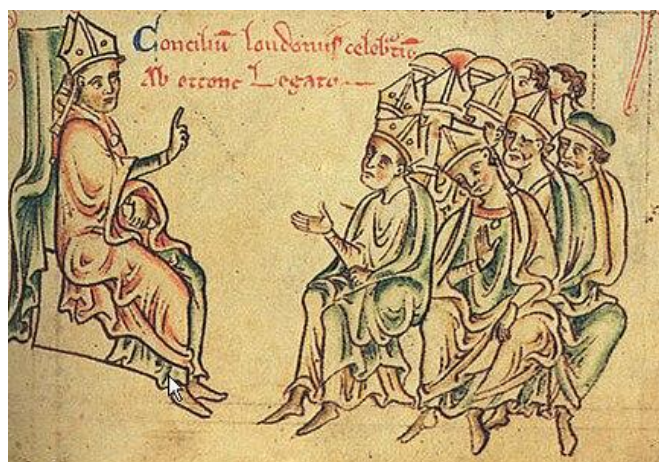 Conciliū londoniis celebrātū
Ab ottone Legato